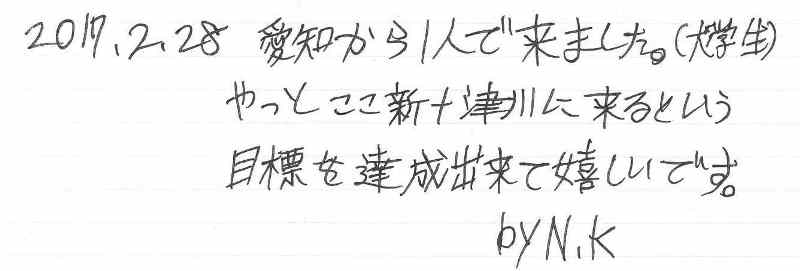 2017.2.28 愛知から1人で来ました。(大学生)
やっとここ新十津川に来るという
目標を達成出来て嬉しいです。
by N.K